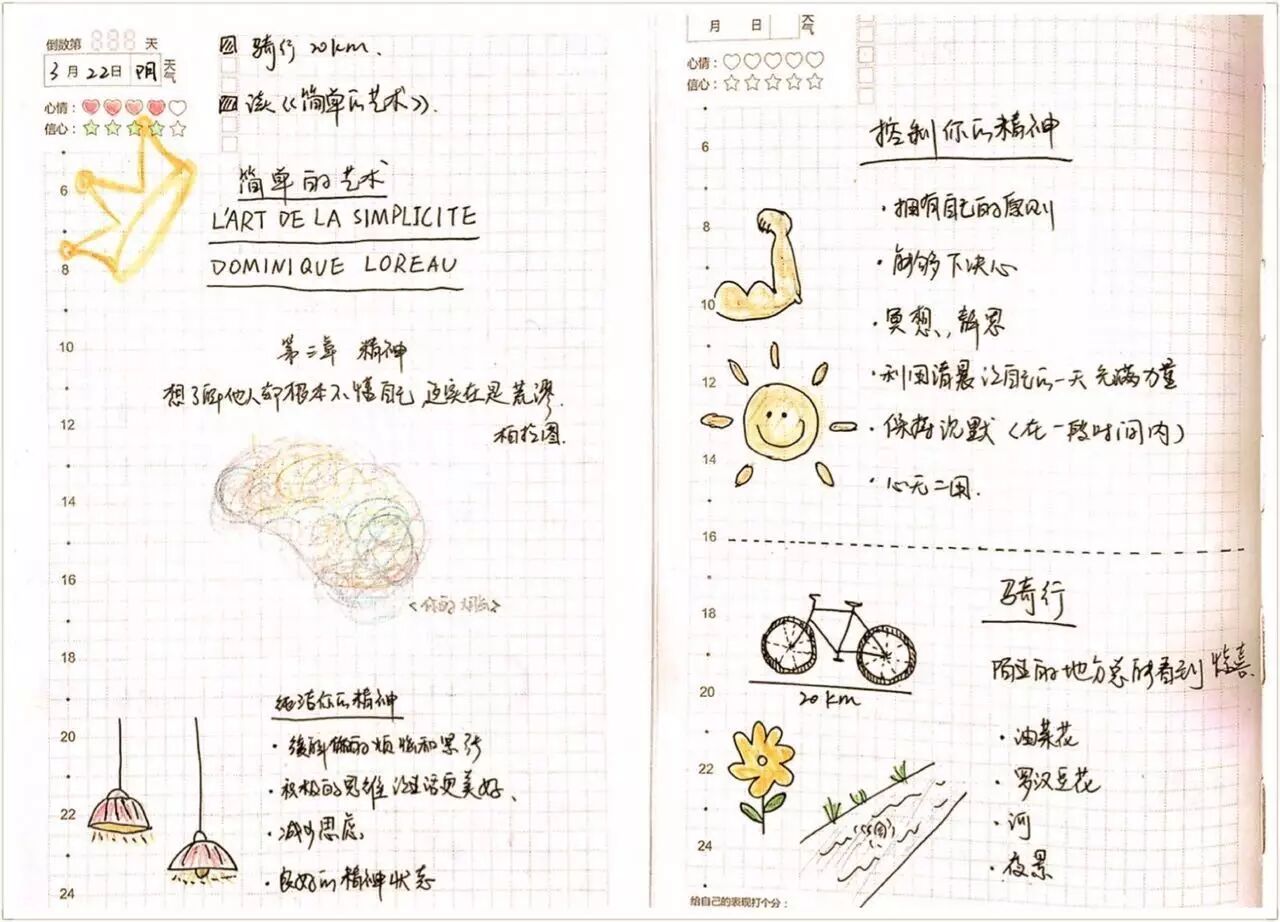 倒数第 888 天
3月22日 阴 天气
心情:
信心:
骑行 20km.
读《简单的艺术》.
简单的艺术
L'ART DE LA SIMPLICITE
DOMINIQUE LOREAU
第二章 精神
想了解他人却根本不懂自己 这实在是荒谬.
柏拉图.
<你的大脑>
纯洁你的精神
·缓解你的烦恼和紧张
·积极的思维 让生活更美好、
·减少思虑
·良好的精神状态
6
8
10
12
14
16
18
20
22
24
月 日 天气
心情:
信心:
控制你的精神
·拥有自己的原则
·能够下决心
·冥想、静思
·利用清晨让自己的一天充满力量
·保持沉默(在一段时间内)
·心无二用.
骑行
20km
陌生的地方总能看到惊喜.
·油菜花
·罗汉豆花
·河
·夜景
6
8
10
12
14
16
18
20
22
24
给自己的表现打个分: